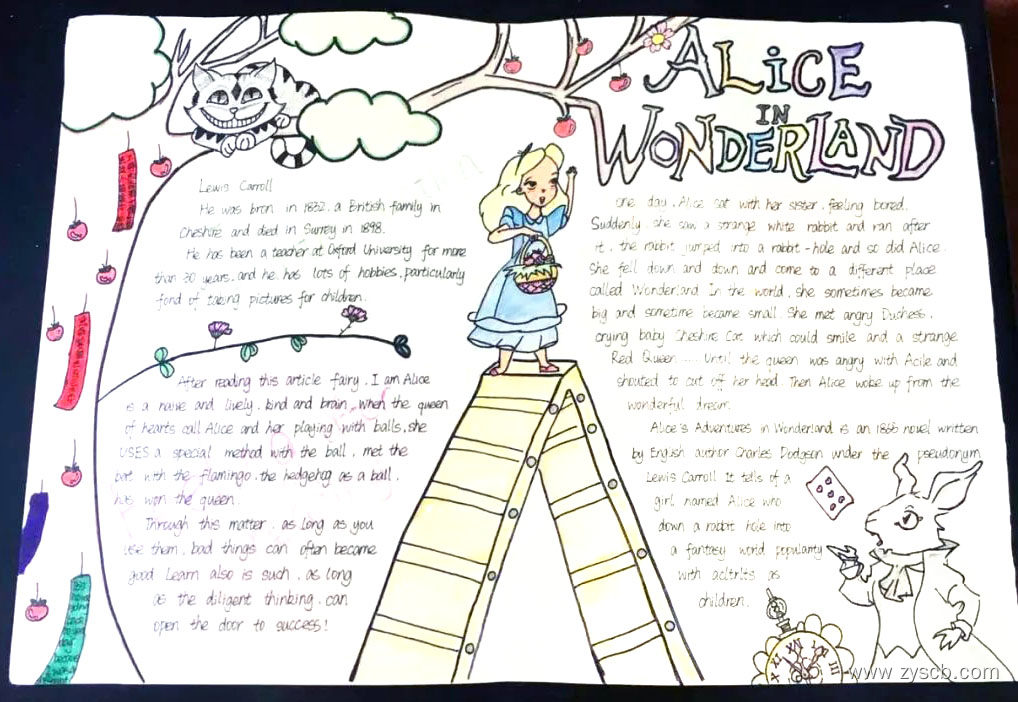 ALiCE
IN
WONDERLAND
Lewis Carroll
He was bron in 1832. a British family in
Cheshire and died in Surrey in 1898.
He has been a teacher at Oxford University for more
than 30 years. and he has lots of hobbies. particularly
fond of taking pictures for children.
After reading this article fairy. I am Alice
is a naive and lively. kind and brain. when the queen
of hearts call Alice and her playing with balls. she
USES a special method with the ball. met the
bat with the flamingo. the hedgehog as a ball.
has won the queen.
Through this matter. as long as you
use them. bad things can often became
good Learn also is such. as long
as the diligent thinking. can
open the door to success!
one day. Alice sat with her sister. feeling bored.
Suddenly. she saw a strange white rabbit and ran after
it. the rabbit jumped into a rabbit-hole and so did Alice.
She fell down and down and come to a different place
called Wonderland In the world. she sometimes became
big and sometime became small. She met angry Duchess.
crying baby Cheshire Cat which could smile and a strange
Red Queen ..... Until the queen was angry with Acile and
shouted to cut off her head. Then Alice woke up from the
wonderful dream.
Alice's Adventures in Wonderland is an 1865 novel written
by English author Charles Dodgson under the pseudonym
Lewis Carroll It tells of a
girl named Alice who
down a rabbit hole into
a fantasy world popularity
with as
children.
XI XII
III
www.zyscb.com